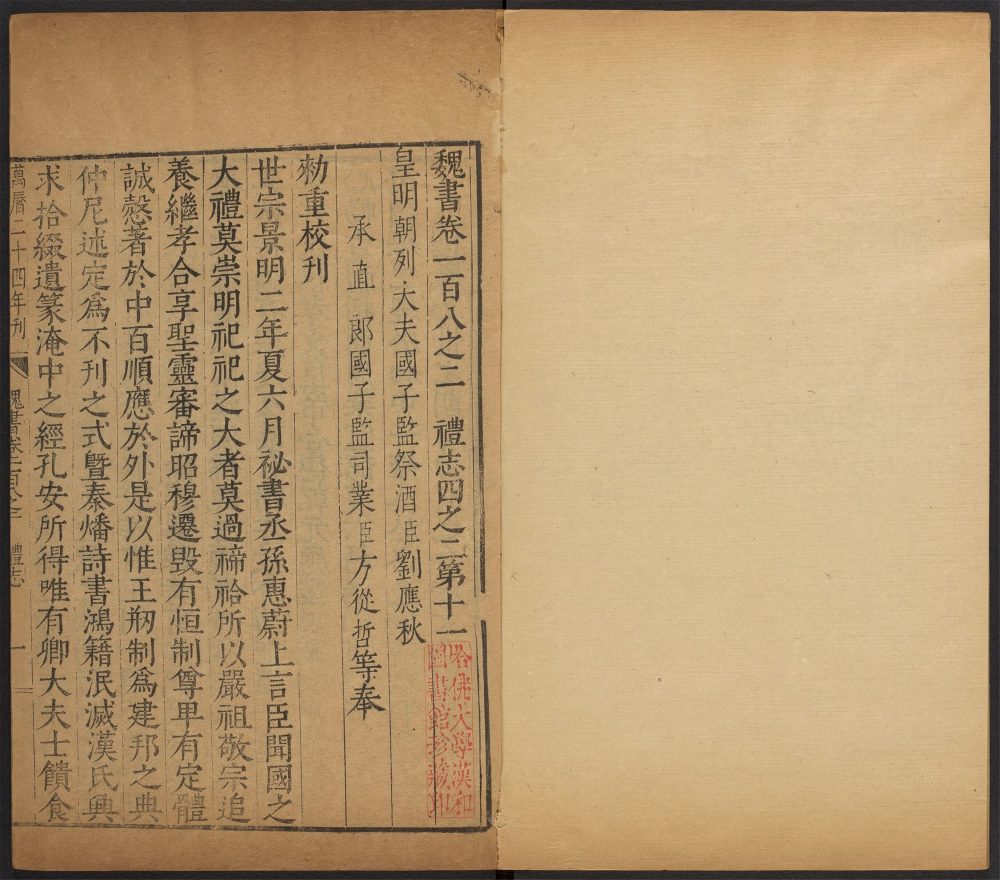 魏書卷一百八之二　禮志四之二第十一
皇明朝列大夫國子監祭酒臣劉應秋
承直　郎國子監司業臣方從哲等奉
勑重校刊
世宗景明二年夏六月祕書丞孫惠蔚上言臣聞國之
大禮莫崇明祀祀之大者莫過禘祫所以嚴祖敬宗追
養繼孝合享聖靈審諦昭穆遷毀有恒制尊卑有定體
誠慤著於中百順應於外是以惟王剏制爲建邦之典
仲尼述定爲不刊之式暨秦燔詩書鴻籍泯滅漢氏興
求拾綴遺篆淹中之經孔安所得唯有卿大夫士饋食
萬曆二十四年刊
魏書卷一百八之二　禮志　一
哈佛大學漢和
圖書館珍藏印